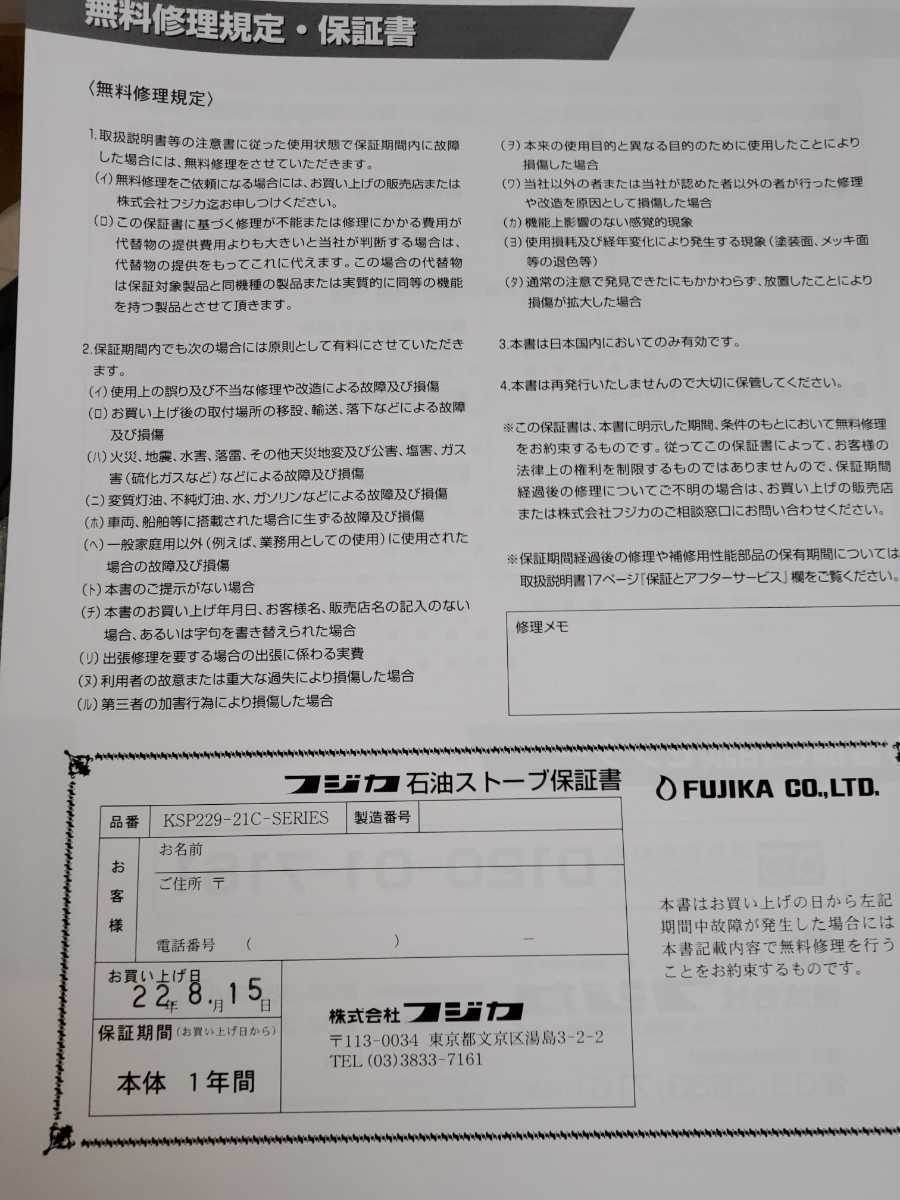 無料修理規定・保証書
〈無料修理規定〉
1.取扱説明書等の注意書に従った使用状態で保証期間内に故障
した場合には、無料修理をさせていただきます。
(イ)無料修理をご依頼になる場合には、お買い上げの販売店または
株式会社フジカ迄お申しつけください。
(ロ)この保証書に基づく修理が不能または修理にかかる費用が
代替物の提供費用よりも大きいと当社が判断する場合は、
代替物の提供をもってこれに代えます。この場合の代替物
は保証対象製品と同機種の製品または実質的に同等の機能
を持つ製品とさせて頂きます。
2.保証期間内でも次の場合には原則として有料にさせていただき
ます。
(イ)使用上の誤り及び不当な修理や改造による故障及び損傷
(ロ)お買い上げ後の取付場所の移設、輸送、落下などによる故障
及び損傷
(ハ)火災、地震、水害、落雷、その他天災地変及び公害、塩害、ガス
害(硫化ガスなど)などによる故障及び損傷
(ニ)変質灯油、不純灯油、水、ガソリンなどによる故障及び損傷
(ホ)車両、船舶等に搭載された場合に生ずる故障及び損傷
(ヘ)一般家庭用以外(例えば、業務用としての使用)に使用された
場合の故障及び損傷
(ト)本書のご提示がない場合
(チ)本書のお買い上げ年月日、お客様名、販売店名の記入のない
場合、あるいは字句を書き替えられた場合
(リ)出張修理を要する場合の出張に係わる実費
(ヌ)利用者の故意または重大な過失により損傷した場合
(ル)第三者の加害行為により損傷した場合
(ヲ)本来の使用目的と異なる目的のために使用したことにより
損傷した場合
(ワ)当社以外の者または当社が認めた者以外の者が行った修理
や改造を原因として損傷した場合
(カ)機能上影響のない感覚的現象
(ヨ)使用損耗及び経年変化により発生する現象(塗装面、メッキ面
等の退色等)
(タ)通常の注意で発見できたにもかかわらず、放置したことにより
損傷が拡大した場合
3.本書は日本国内においてのみ有効です。
4.本書は再発行いたしませんので大切に保管してください。
※この保証書は、本書に明示した期間、条件のもとにおいて無料修理
をお約束するものです。従ってこの保証書によって、お客様の
法律上の権利を制限するものではありませんので、保証期間
経過後の修理についてご不明の場合は、お買い上げの販売店
または株式会社フジカのご相談窓口にお問い合わせください。
※保証期間経過後の修理や補修用性能部品の保有期間については
取扱説明書17ページ『保証とアフターサービス』欄をご覧ください。
修理メモ
フジカ 石油ストーブ保証書
品番 KSP229-21C-SERIES 製造番号
お客様
お名前
ご住所 〒
電話番号 ( ) ー
お買い上げ日
22年 8.月 15日
保証期間(お買い上げ日から)
本体 1年間
株式会社フジカ
〒113-0034 東京都文京区湯島3-2-2
TEL(03)3833-7161
FUJIKA CO.,LTD.
本書はお買い上げの日から左記
期間中故障が発生した場合には
本書記載内容で無料修理を行う
ことをお約束するものです。